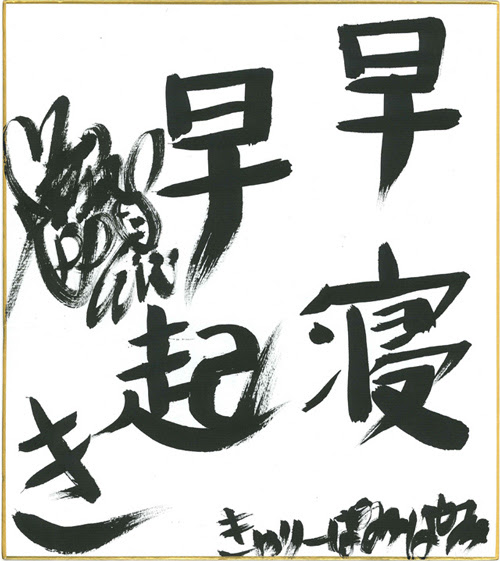 早寝
早起き
きゃりーぱみゅぱみゅ